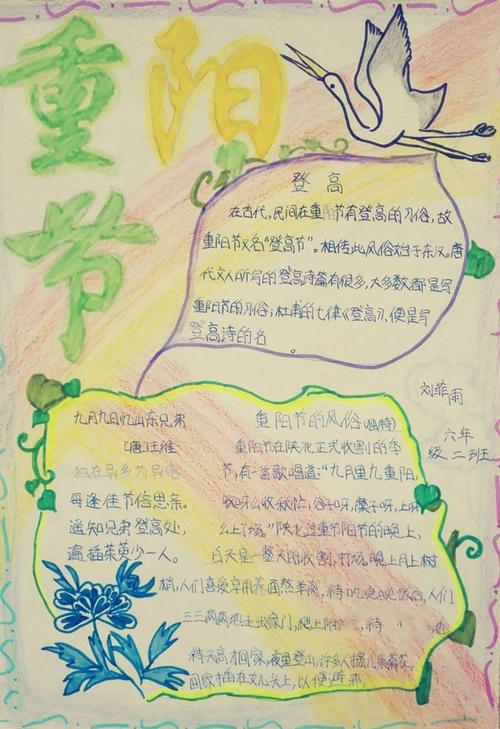 重阳节
登高
在古代,民间在重阳节有登高的习俗,故
重阳节又名"登高节"。相传此风俗始于东汉。唐
代文人所写的登高诗篇有很多,大多数都是写
重阳节的习俗;杜甫的七律《登高》,便是写
登高诗的名
。
刘菲雨
六年
级二班
九月九日忆山东兄弟
[唐]王维
独在异乡为异客
每逢佳节倍思亲。
遥知兄弟登高处,
遍插茱萸少一人。
重阳节的风俗(独特)
重阳节在陕北正式收割的季
节,有首歌唱道:"九月里九重阳,
收呀么收秋忙,谷子呀,糜子呀,上呀
么上了场。"陕北过重节阳节的晚上,
白天是一整天的收割,打场。晚上月上树
梢,人们喜爱享用荞面熬羊肉,待吃完晚饭后,人们
三三两两地走出家门,爬上附
待天高才回家,夜里登山,许多人摘几朵菊花,
回家插在女儿头上,以便避邪